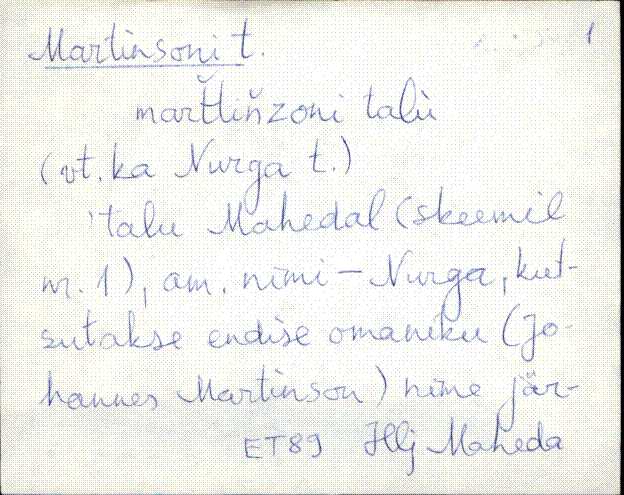 Martinsoni t. 1
mart̆tiňzoni talù
(vt. ka Nurga t.)
'talu Mahedal (skeemil
nr. 1), am. nimi – Nurga, kut-
sutakse endise omaniku (Jo-
hannes Martinson) nime jär-
ET89 Hlj Maheda